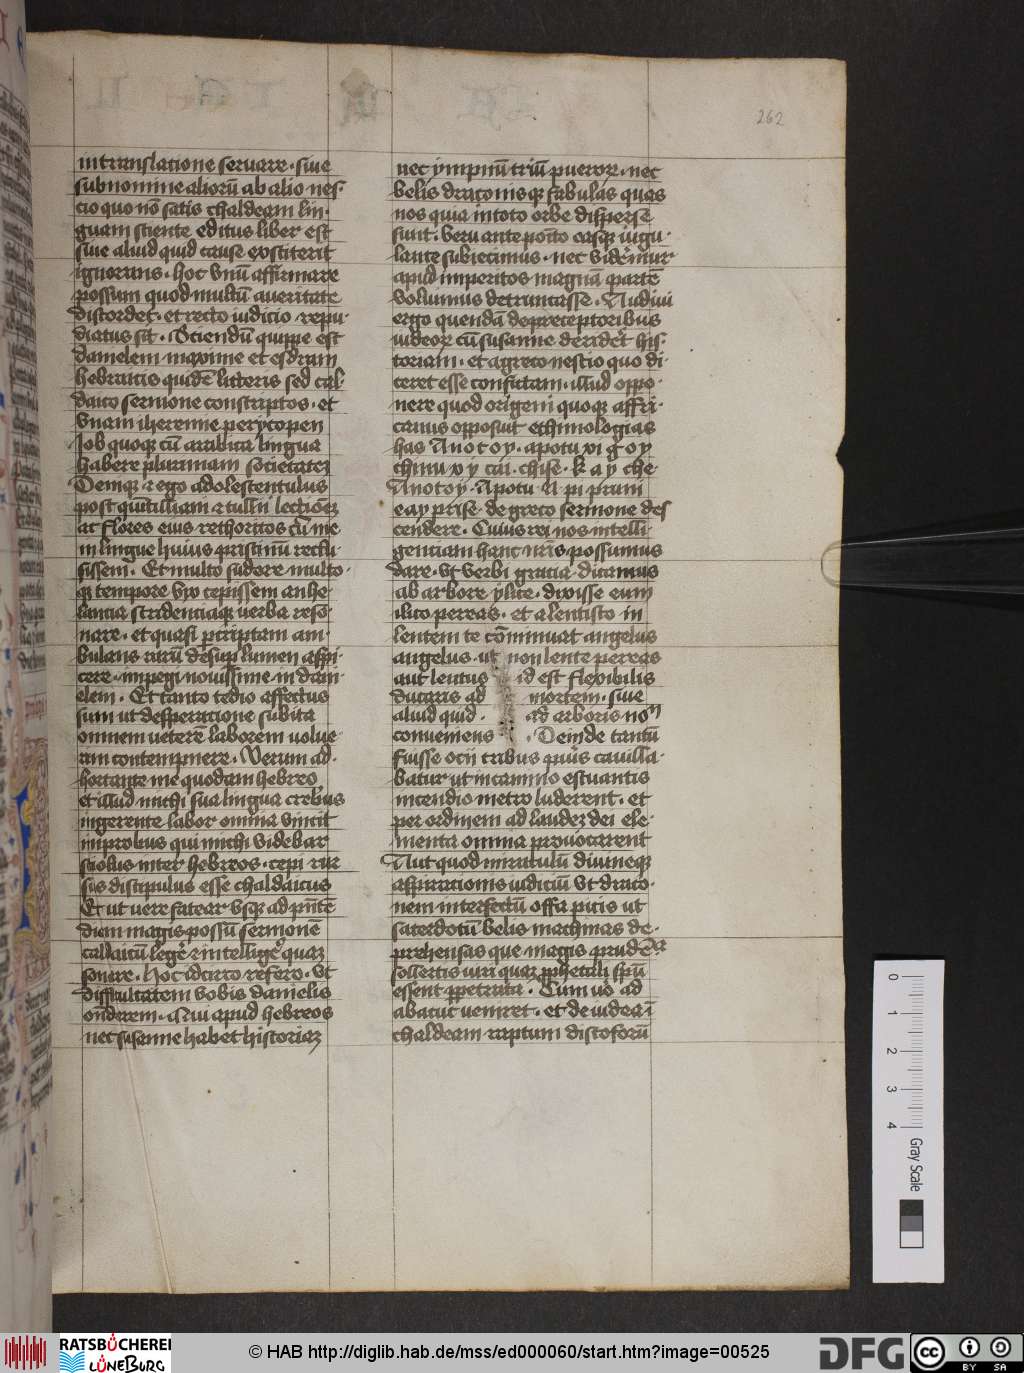 262
in translatione seruare · siue
sub nomine aliorū ab alio nes·
cio quo nō satis chaldeam lin·
guam sciente editus liber est
siue aliud quid cause exstiterit
ignorans · hoc vnū affirmare
possum quod multū a ueritate
discordet · et recto iudicio repu·
diatus sit · Sciendū quippe est
danielem maxime et esdram
hebraicis quidē litteris sed cal·
daico sermone conscriptos · et
vnam iheremie perycopen
Job quoque cū arabica lingua
habere plurimam societatez
Deniqꝫ ⁊ ego adolescentulus
post quintiliani ⁊ tullii lectiōeꝫ
ac flores eius rethoricos cū me
in lingue huius pristinū reclu·
sissem · Et multo sudore multo·
qꝫ tempore vix cepissem anhe·
lancia stridenciaqꝫ verba reso·
nare · et quasi ꝑ criptam am·
bulans rarū desuꝑ lumen aspi·
cere · impegi nouissime in dani·
elem · Et tanto tedio affectus
sum ut desperatione subita
omnem ueterē laborem uolue·
rim contempnere · Verum ad·
hortante me quodam hebreo
et illud michi sua lingua crebrius
ingerente labor omnia vincit
improbus qui michi videbar
sciolus inter hebreos · cepi rur
sus discipulus esse chaldaicus
Et ut uere fatear vsqꝫ ad p̄ntē
diem magis possū sermonē
caldaicū leg̓e ⁊ intellig̓e quaꝫ
sonare · Hoc idcirco refero · vt
difficultatem vobis danielis
ondērem · Qui apud hebreos
nec susanne habet historiaꝫ
nec ympnū triū pueroꝝ · nec
belis draconisqꝫ fabulas quas
nos quia in toto orbe disperse
sunt · veru anteposito easqꝫ iugu·
lante subiecimus · nec viderem̄ur
apud imperitos magnā partē
voluminis detruncasse · Audiui
ergo quendā de preceptoribus
iudeoꝝ cū susanne deridēt his·
toriam · et a greco nescio quo di
ceret esse confictam · illud oppo·
nere quod origeni quoqꝫ affri·
canus opposuit ethimologias
has
descendere · Cuius rei nos intelli·
genciam hanc nr̄is possumus
dare · vt verbi gracia dicamus
ab arbore ylice · dixisse eum
ilico pereas · et a lentisco in
lentem te cōminuat angelus
angelus · ut non lente pereas
aut lentus id est flexibilis
ducaris ad mortem · siue
aliud quid · ad arboris no͞m
conueniens · Deinde tantū
fuisse ocii tribus pueris cauilla·
batur ut in camino estuantis
incendio metro luderent · et
per ordinem ad laudeꝫ dei ele·
menta omnia prouocarent
Aut quod miraculū diuineqꝫ
aspirationis iudiciū vt draco·
nem interfectū offa picis ut
sacerdotū belis machinas de·
prehensas que magis prudētia
sollertis uiri quaꝫ ꝓphetali spū
essent ꝑpetrata · Cum uō ad
abacuc veniret · et de iudea ī
chaldeam raptum discoforū
0
1
2
3
4
Gray Scale
RATSBÜCHEREI
LÜNEBURG
© HAB http://diglib.hab.de/mss/ed000060/start.htm?image=00525
DFG
cc
BY SA